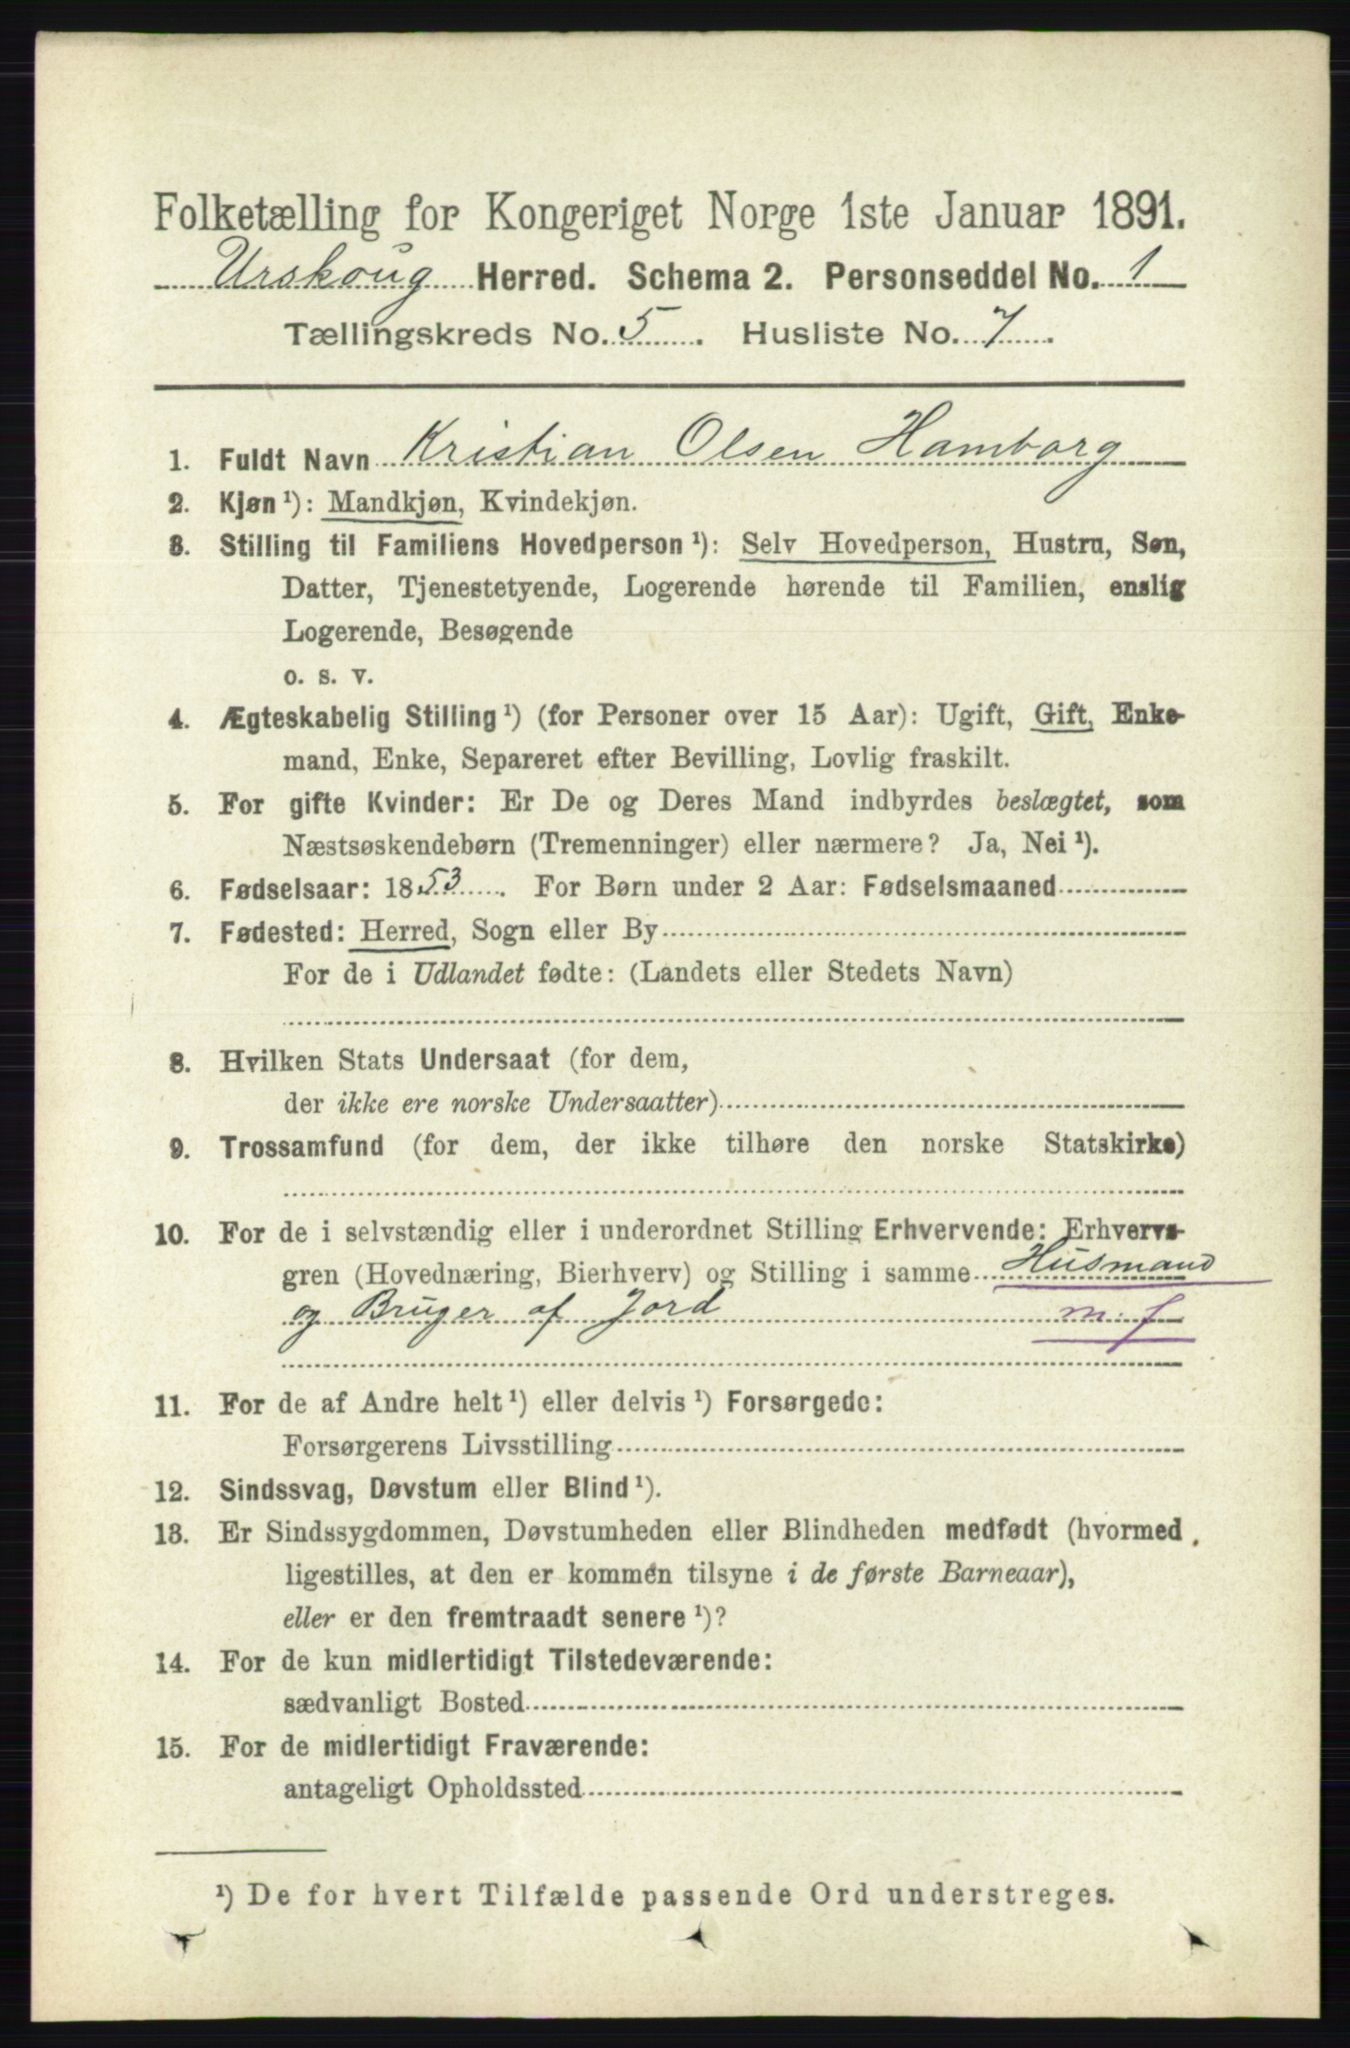 Folketælling for Kongeriget Norge 1ste Januar 1891.
Urskoug Herred. Schema 2. Personseddel No. 1
Tællingskreds No. 5. Husliste No. 7.
1. Fuldt Navn Kristian Olsen Hamborg
2. Kjøn ¹): Mandkjøn, Kvindekjøn.
3. Stilling til Familiens Hovedperson ¹): Selv Hovedperson, Hustru, Søn,
Datter, Tjenestetyende, Logerende hørende til Familien, enslig
Logerende, Besøgende
o. s. v.
4. Ægteskabelig Stilling ¹) (for Personer over 15 Aar): Ugift, Gift, Enke-
mand, Enke, Separeret efter Bevilling, Lovlig fraskilt.
5. For gifte Kvinder: Er De og Deres Mand indbyrdes beslægtet, som
Næstsøskendebørn (Tremenninger) eller nærmere? Ja, Nei ¹).
6. Fødselsaar: 1853. For Børn under 2 Aar: Fødselsmaaned
7. Fødested: Herred, Sogn eller By
For de i Udlandet fødte: (Landets eller Stedets Navn)
8. Hvilken Stats Undersaat (for dem,
der ikke ere norske Undersaatter)
9. Trossamfund (for dem, der ikke tilhøre den norske Statskirke)
10. For de i selvstændig eller i underordnet Stilling Erhvervende: Erhvervs-
gren (Hovednæring, Bierhverv) og Stilling i samme Husmand
og Bruger af Jord m. f
11. For de af Andre helt ¹) eller delvis ¹) Forsørgede:
Forsørgerens Livsstilling
12. Sindssvag, Døvstum eller Blind ¹).
13. Er Sindssygdommen, Døvstumheden eller Blindheden medfødt (hvormed
ligestilles, at den er kommen tilsyne i de første Barneaar),
eller er den fremtraadt senere ¹)?
14. For de kun midlertidigt Tilstedeværende:
sædvanligt Bosted
15. For de midlertidigt Fraværende:
antageligt Opholdssted
¹) De for hvert Tilfælde passende Ord understreges.